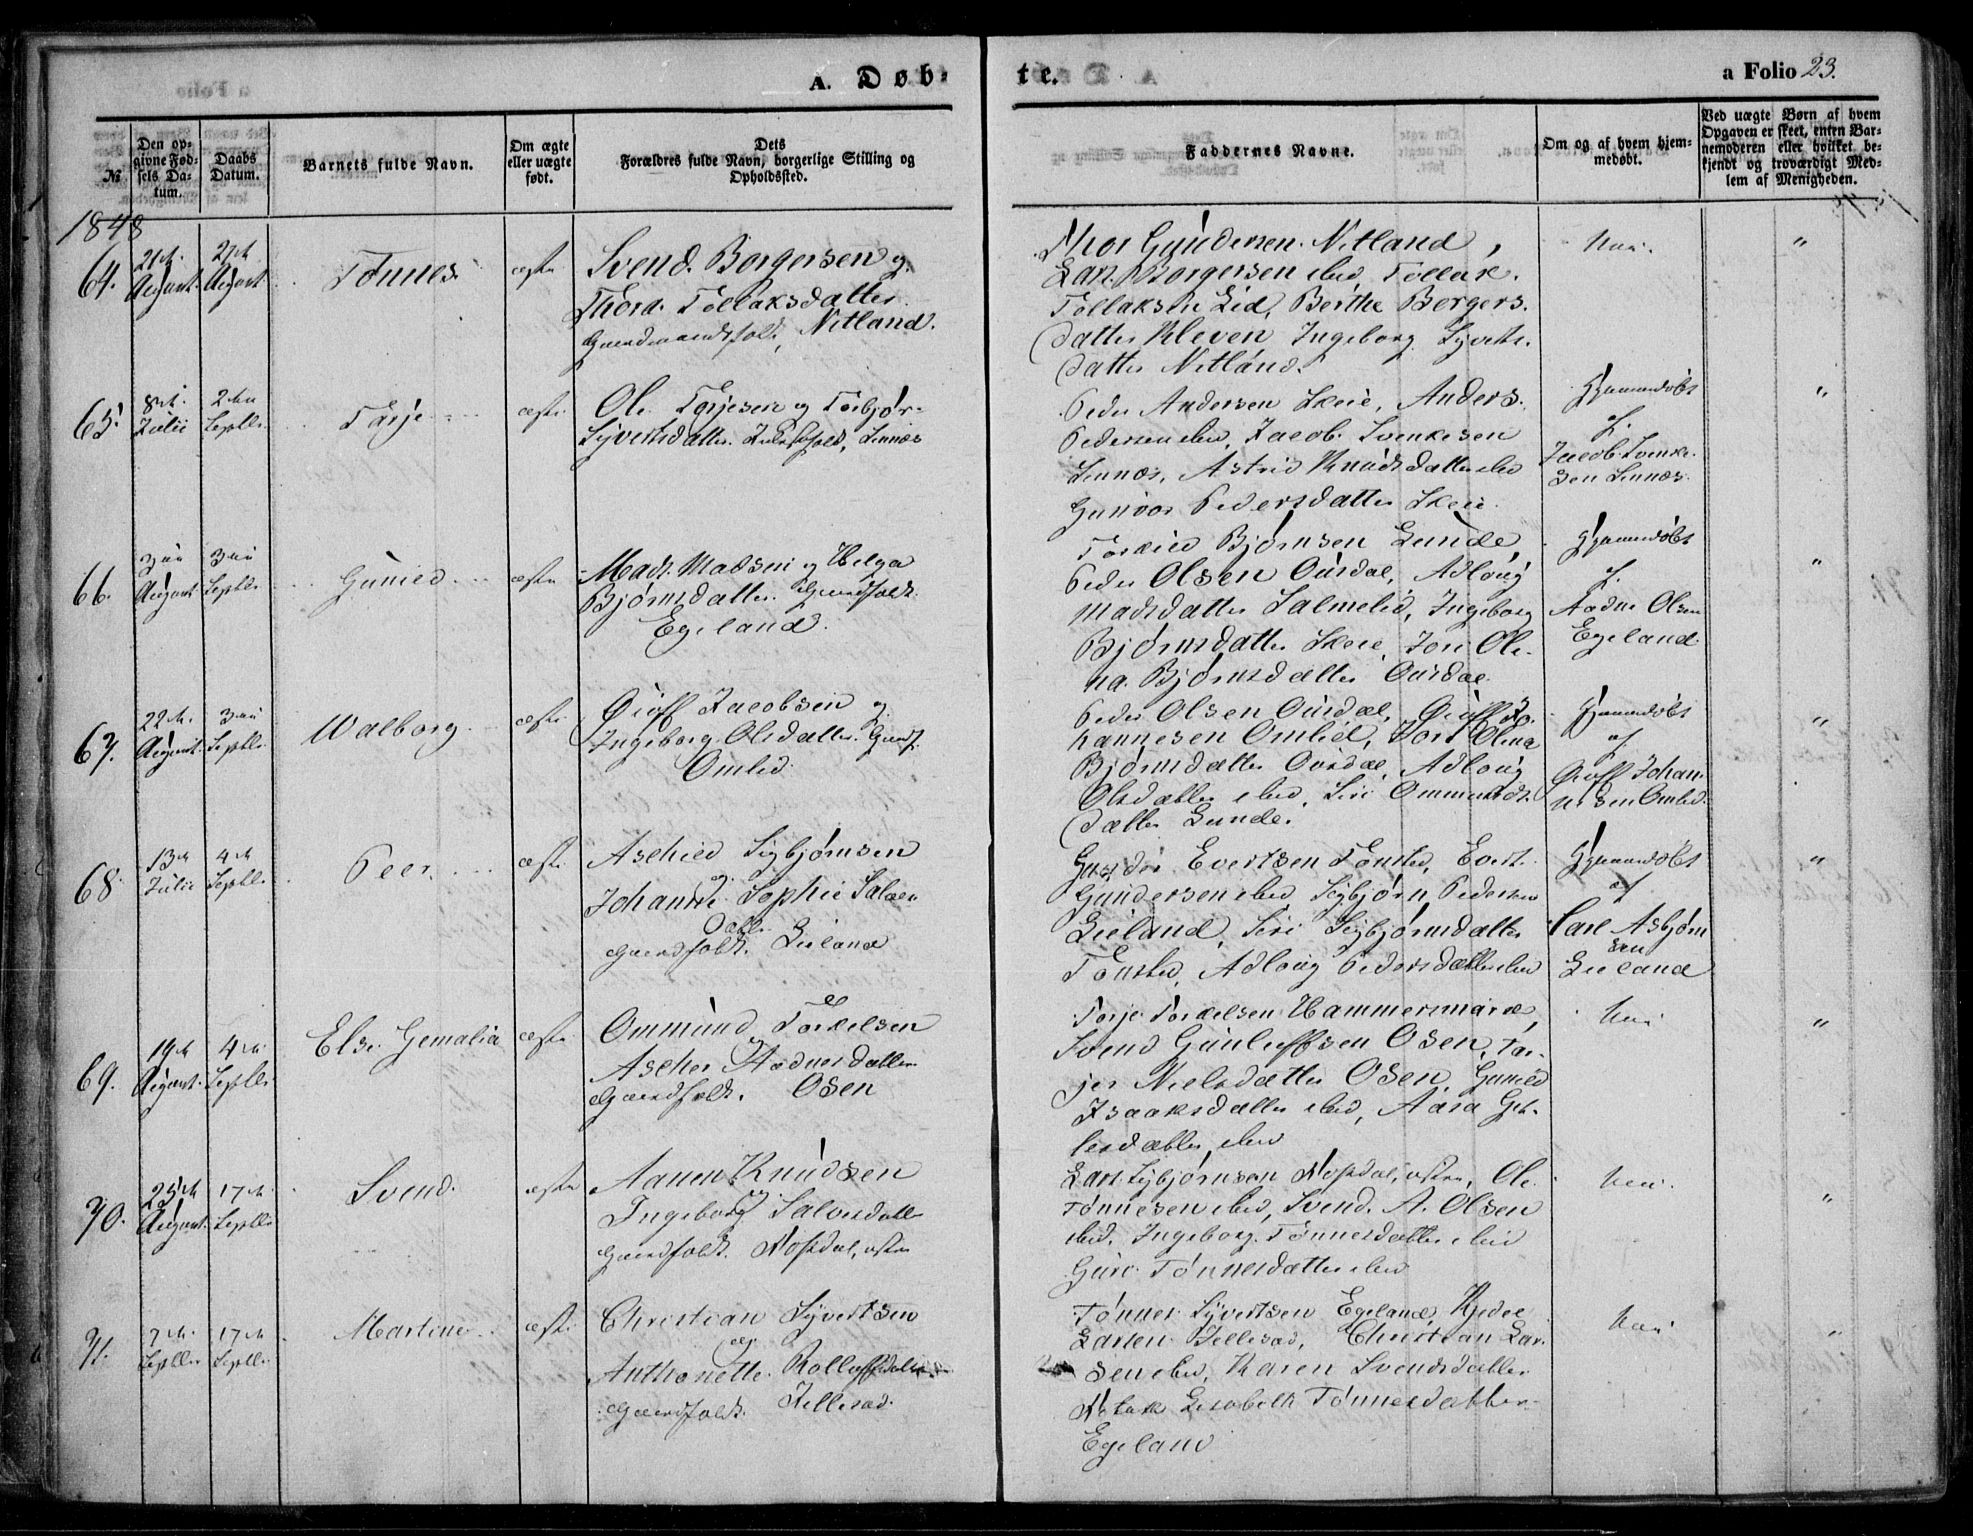 A. Døb-
te.
a Folio 23.
№
Den op-
givne Fød-
sels Da-
tum.
Daabs
Datum.
Barnets fulde Navn.
Om ægte
eller uægte
født.
Dets
Forældres fulde Navn, borgerlige Stilling og
Opholdssted.
Faddernes Navne.
Om og af hvem hjem-
medøbt.
Ved uægte Børn af hvem
Opgaven er skeet, enten Bar-
nemoderen eller hvilket be-
kjendt og troværdigt Med-
lem af Menigheden.
1848
64.
21de
August
27de
August
Tønnes
ægte
Svend Borgersen og
Thora Tollaksdatter
Gaardmandsfolk, Nitland.
Thor Gundersen Nitland,
Lars Borgersen ibid, Tollak
Tollaksen Lid, Berthe Borgers-
datter Kleven Ingeborg Syverts-
datter Nitland.
Nei.
"
65.
8de
Julii
2den
Septbr
Tarje
ægte
Ole Terjesen og Torbjør-
Syvertsdatter. Sinnes
Peder Andersen Skeie, Anders
Pedersen ibid, Jacob Svenkesen
Sinnes, Astrid Knudsdatter ibid
Gunvor Pedersdatter Skeie.
Hjemmedøbt
af
Jacob Svenke-
sen Sinnes
"
66.
August
3die
Septbr
Gunild
ægte
Mads Madsen og Helga
Bjørnsdatter. Gaardfolk.
Egeland.
Torkild Bjørnsen Lunde,
Peder Olsen Ousdal, Adloug
Madsdatter Salmelid, Ingeborg
Bjørnsdatter Skeie, Jori Ole-
na Bjørnsdatter Ousdal.
Hjemmedøbt
af
Aadne Olsen
Egeland.
"
67.
22de
August
3die
Septbr
Walborg
ægte
Jacobsen og
Ingeborg Olsdatter. Gaardf.
Omlid
Peder Olsen Ousdal, Jo-
hannesen Omlid, Jori Olena
Bjørnsdatter Ousdal, Adloug
Olsdatter ibid, Siri Ommunds-
datter Lunde.
Hjemmedøbt
af
Johan-
nesen Omlid.
"
68.
13de
Julii
4de
Septbr
Peer
ægte
Aschild Sigbjørnsen
og
Johanne Sophie Salven
Datter
Gaardfolk. Lieland
Gunder Evertsen Tonstad, Evert
Gundersen ibid, Sigbjørn Pedersen
Lieland, Siri Sigbjørnsdatter
Tonstad, Adloug Pedersdatter ibid
Hjemmedøbt
af
Carl Asbjørn
sen
Lieland
"
69.
19de
August
4de
Septbr
Else Gemalia
ægte
Ommund Torkelsen
og
Ascher Aadnesdatter
Gaardfolk. Osen
Torje Torkelsen Hammersmark,
Svend Gunluffsen Osen, Tor-
jer Nielsdatter Osen, Gunild
Isaaksdatter ibid, Aasa
datter ibid
Nei
"
70.
25de
August
17de
Septbr
Svend
ægte
Aanen Knudsen
og
Ingeborg Salvesdatter
Gaardfolk.
Lars Sigbjørnsen, Ole
Tønnesen ibid, Svend A. Olsen
ibid, Ingeborg Tønnesdatter ibid
Guro Tønnesdatter ibid
Nei.
"
71.
7de
Septbr
17de
Septbr
Martine
ægte
Christian Syvertsen
og
Anthonette Rolluffsdatter
Gaardfolk.
Tønnes Syvertsen Egeland, Kjedel
Larsen, Christian Lar-
sen ibid, Karen Svendsdatter
Lisabeth Tønnesdatter
Egeland
Nei
"